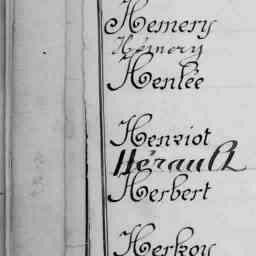 Hemery
Hémery
Henlée
Henriot
Hérault
Herbert
Herkoy